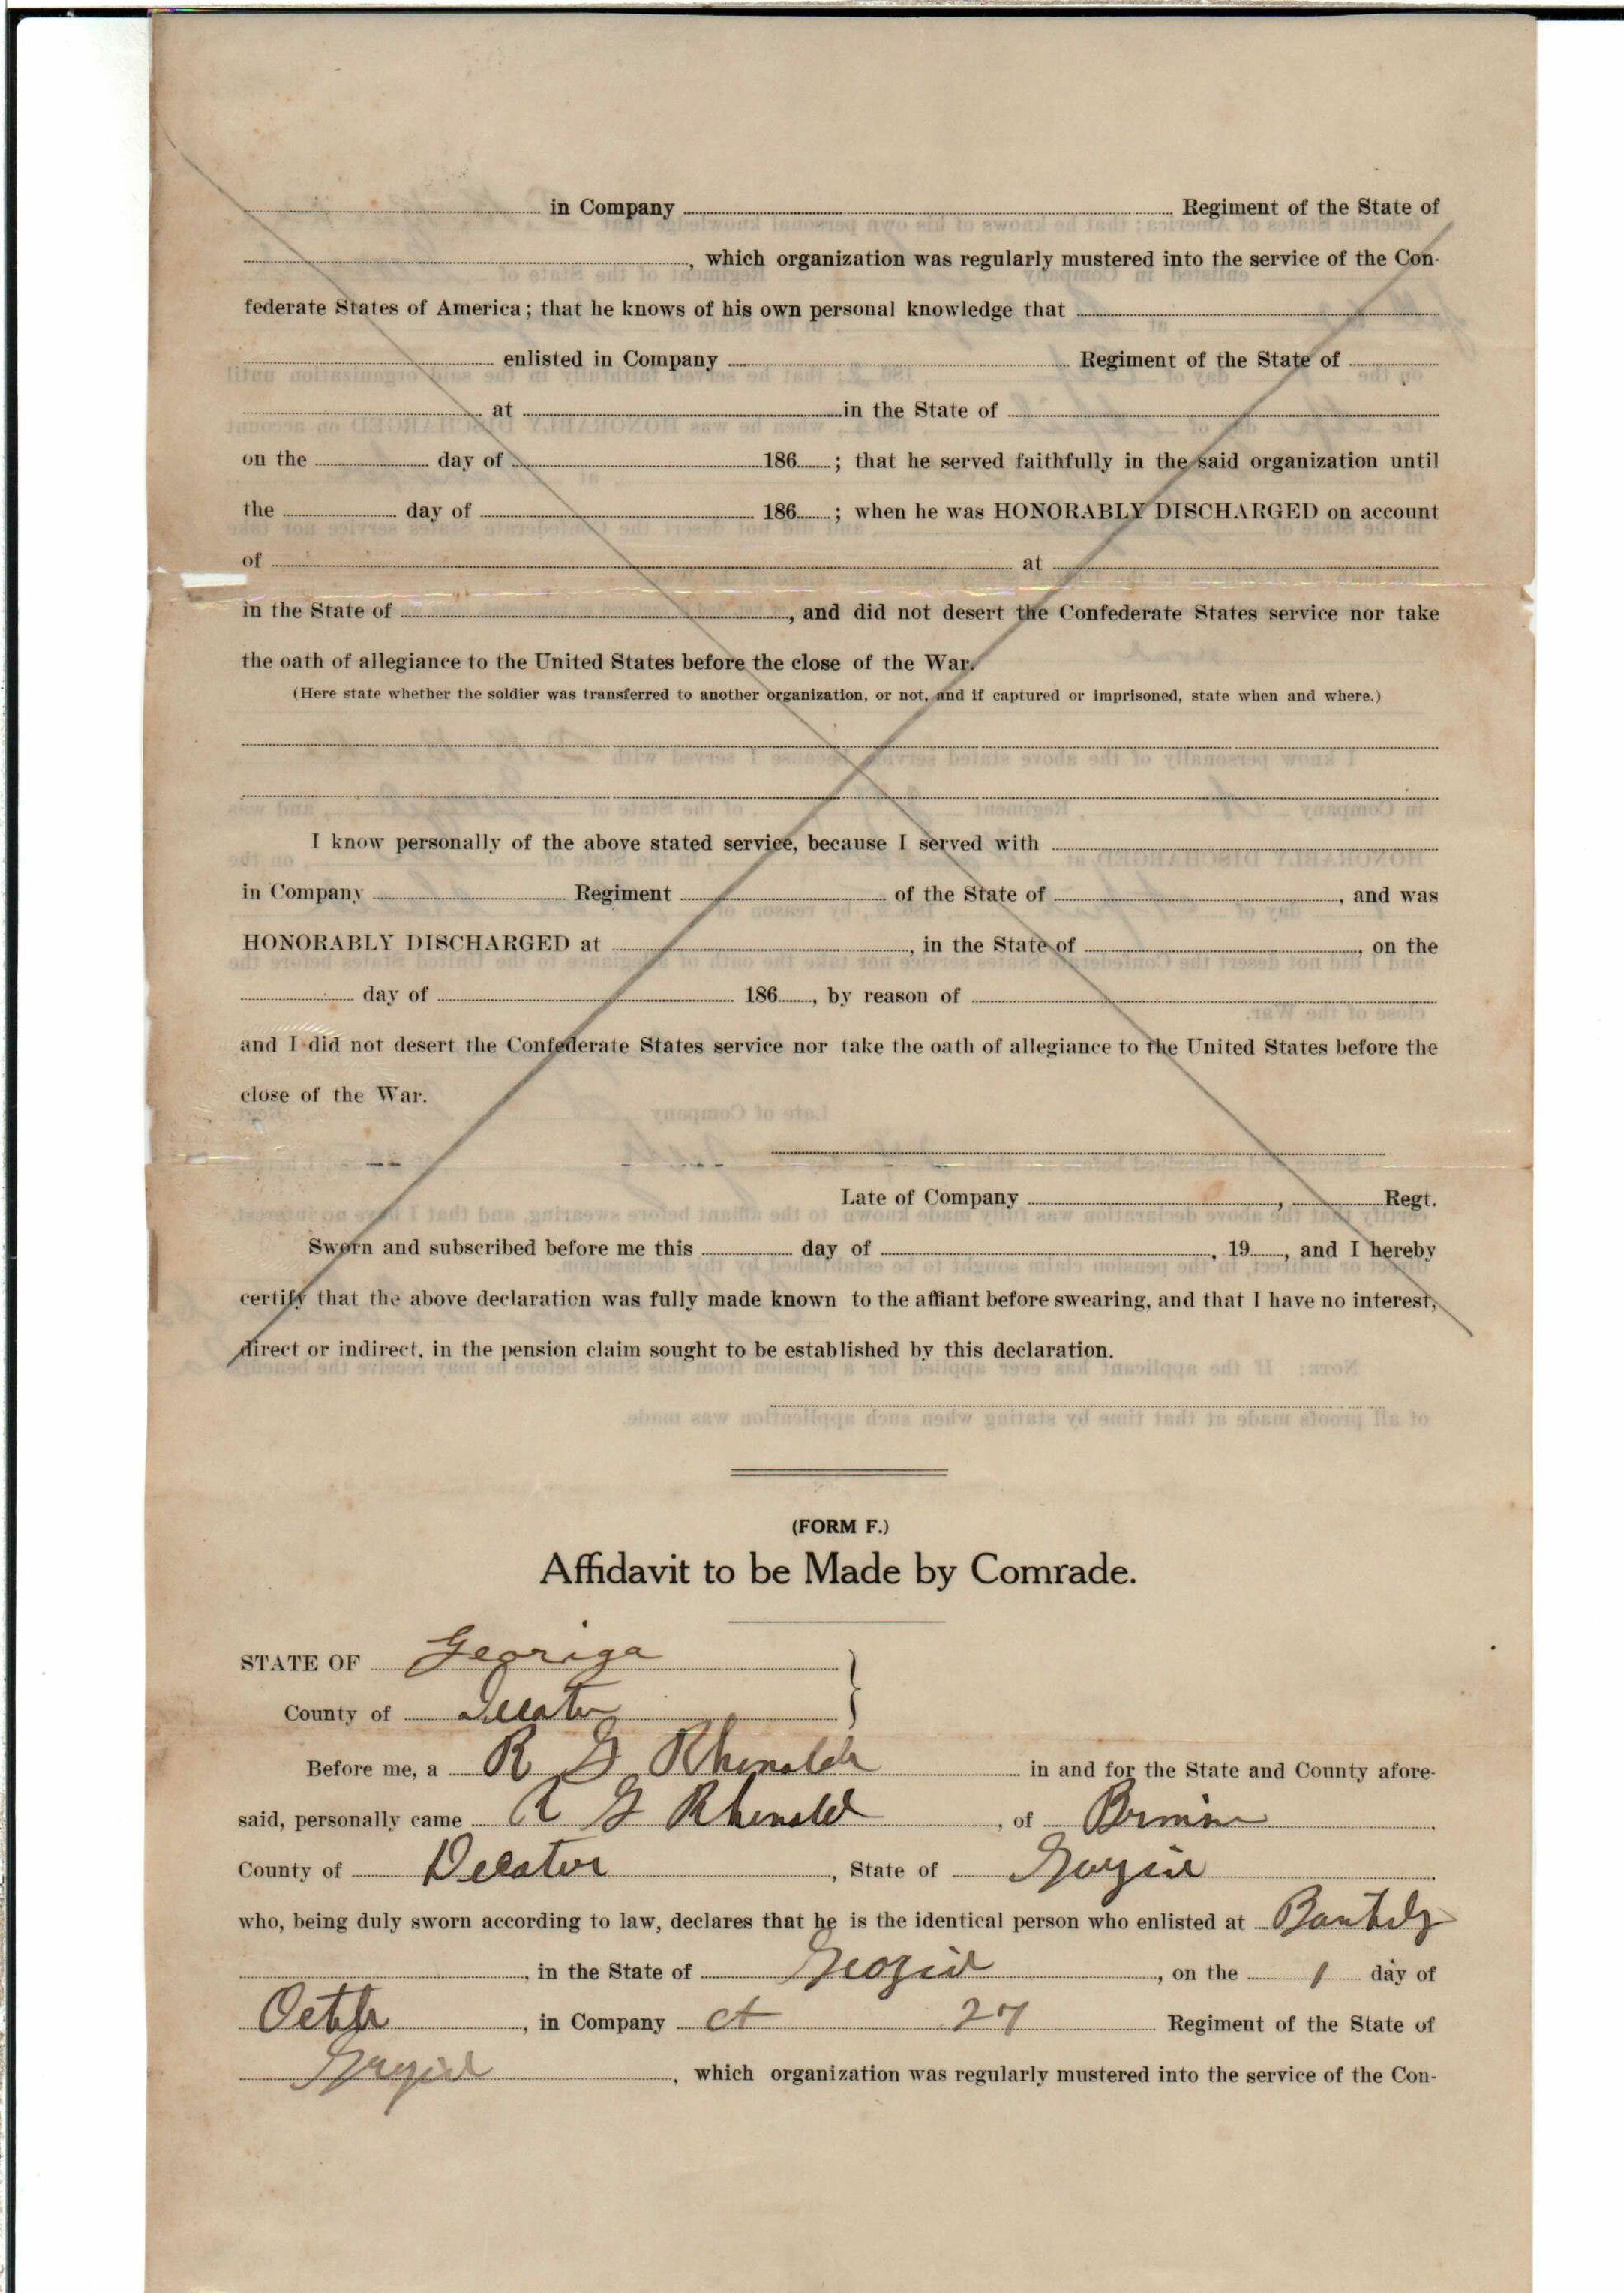 in Company Regiment of the State of
, which organization was regularly mustered into the service of the Con-
federate States of America; that he knows of his own personal knowledge that
enlisted in Company Regiment of the State of
at in the State of
on the day of 186 ; that he served faithfully in the said organization until
the day of 186 ; when he was HONORABLY DISCHARGED on account
of at
in the State of , and did not desert the Confederate States service nor take
the oath of allegiance to the United States before the close of the War.
(Here state whether the soldier was transferred to another organization, or not, and if captured or imprisoned, state when and where.)
I know personally of the above stated service, because I served with
in Company Regiment of the State of , and was
HONORABLY DISCHARGED at , in the State of , on the
day of 186 , by reason of
and I did not desert the Confederate States service nor take the oath of allegiance to the United States before the
close of the War.
Late of Company , Regt.
Sworn and subscribed before me this day of , 19 , and I hereby
certify that the above declaration was fully made known to the affiant before swearing, and that I have no interest,
direct or indirect, in the pension claim sought to be established by this declaration.
(FORM F.)
Affidavit to be Made by Comrade.
STATE OF Georiga
County of
Before me, a R G in and for the State and County afore-
said, personally came R G , of
County of Decator , State of
who, being duly sworn according to law, declares that he is the identical person who enlisted at
, in the State of , on the 1 day of
, in Company A 27 Regiment of the State of
, which organization was regularly mustered into the service of the Con-